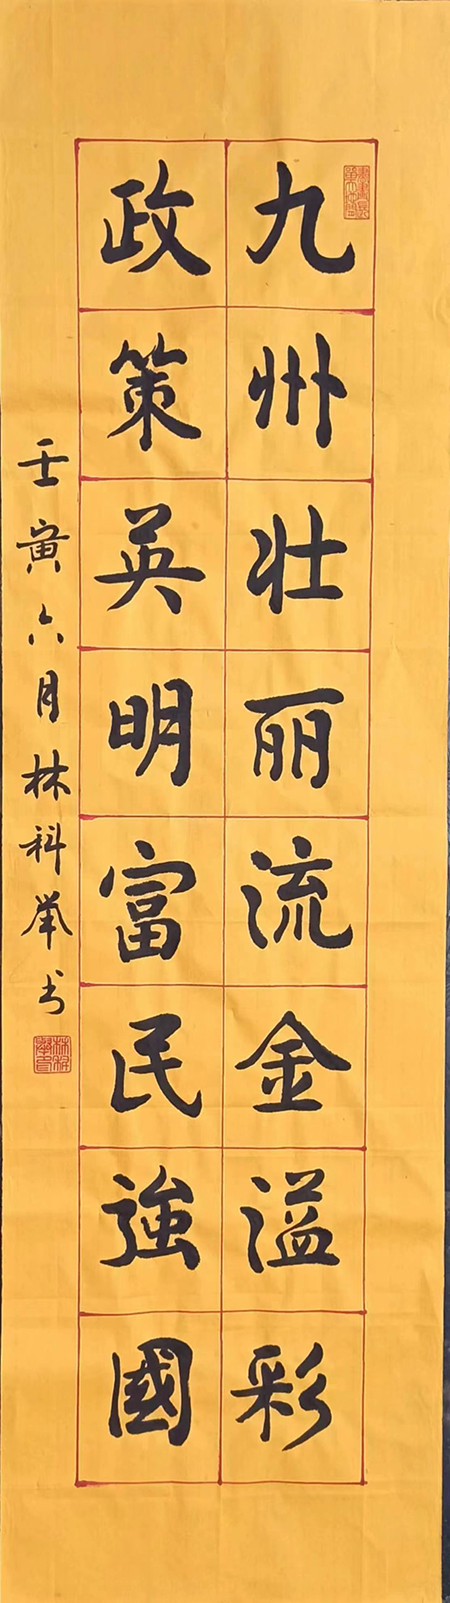 九州壮丽流金溢彩
政策英明富民強國
壬寅六月林科举书